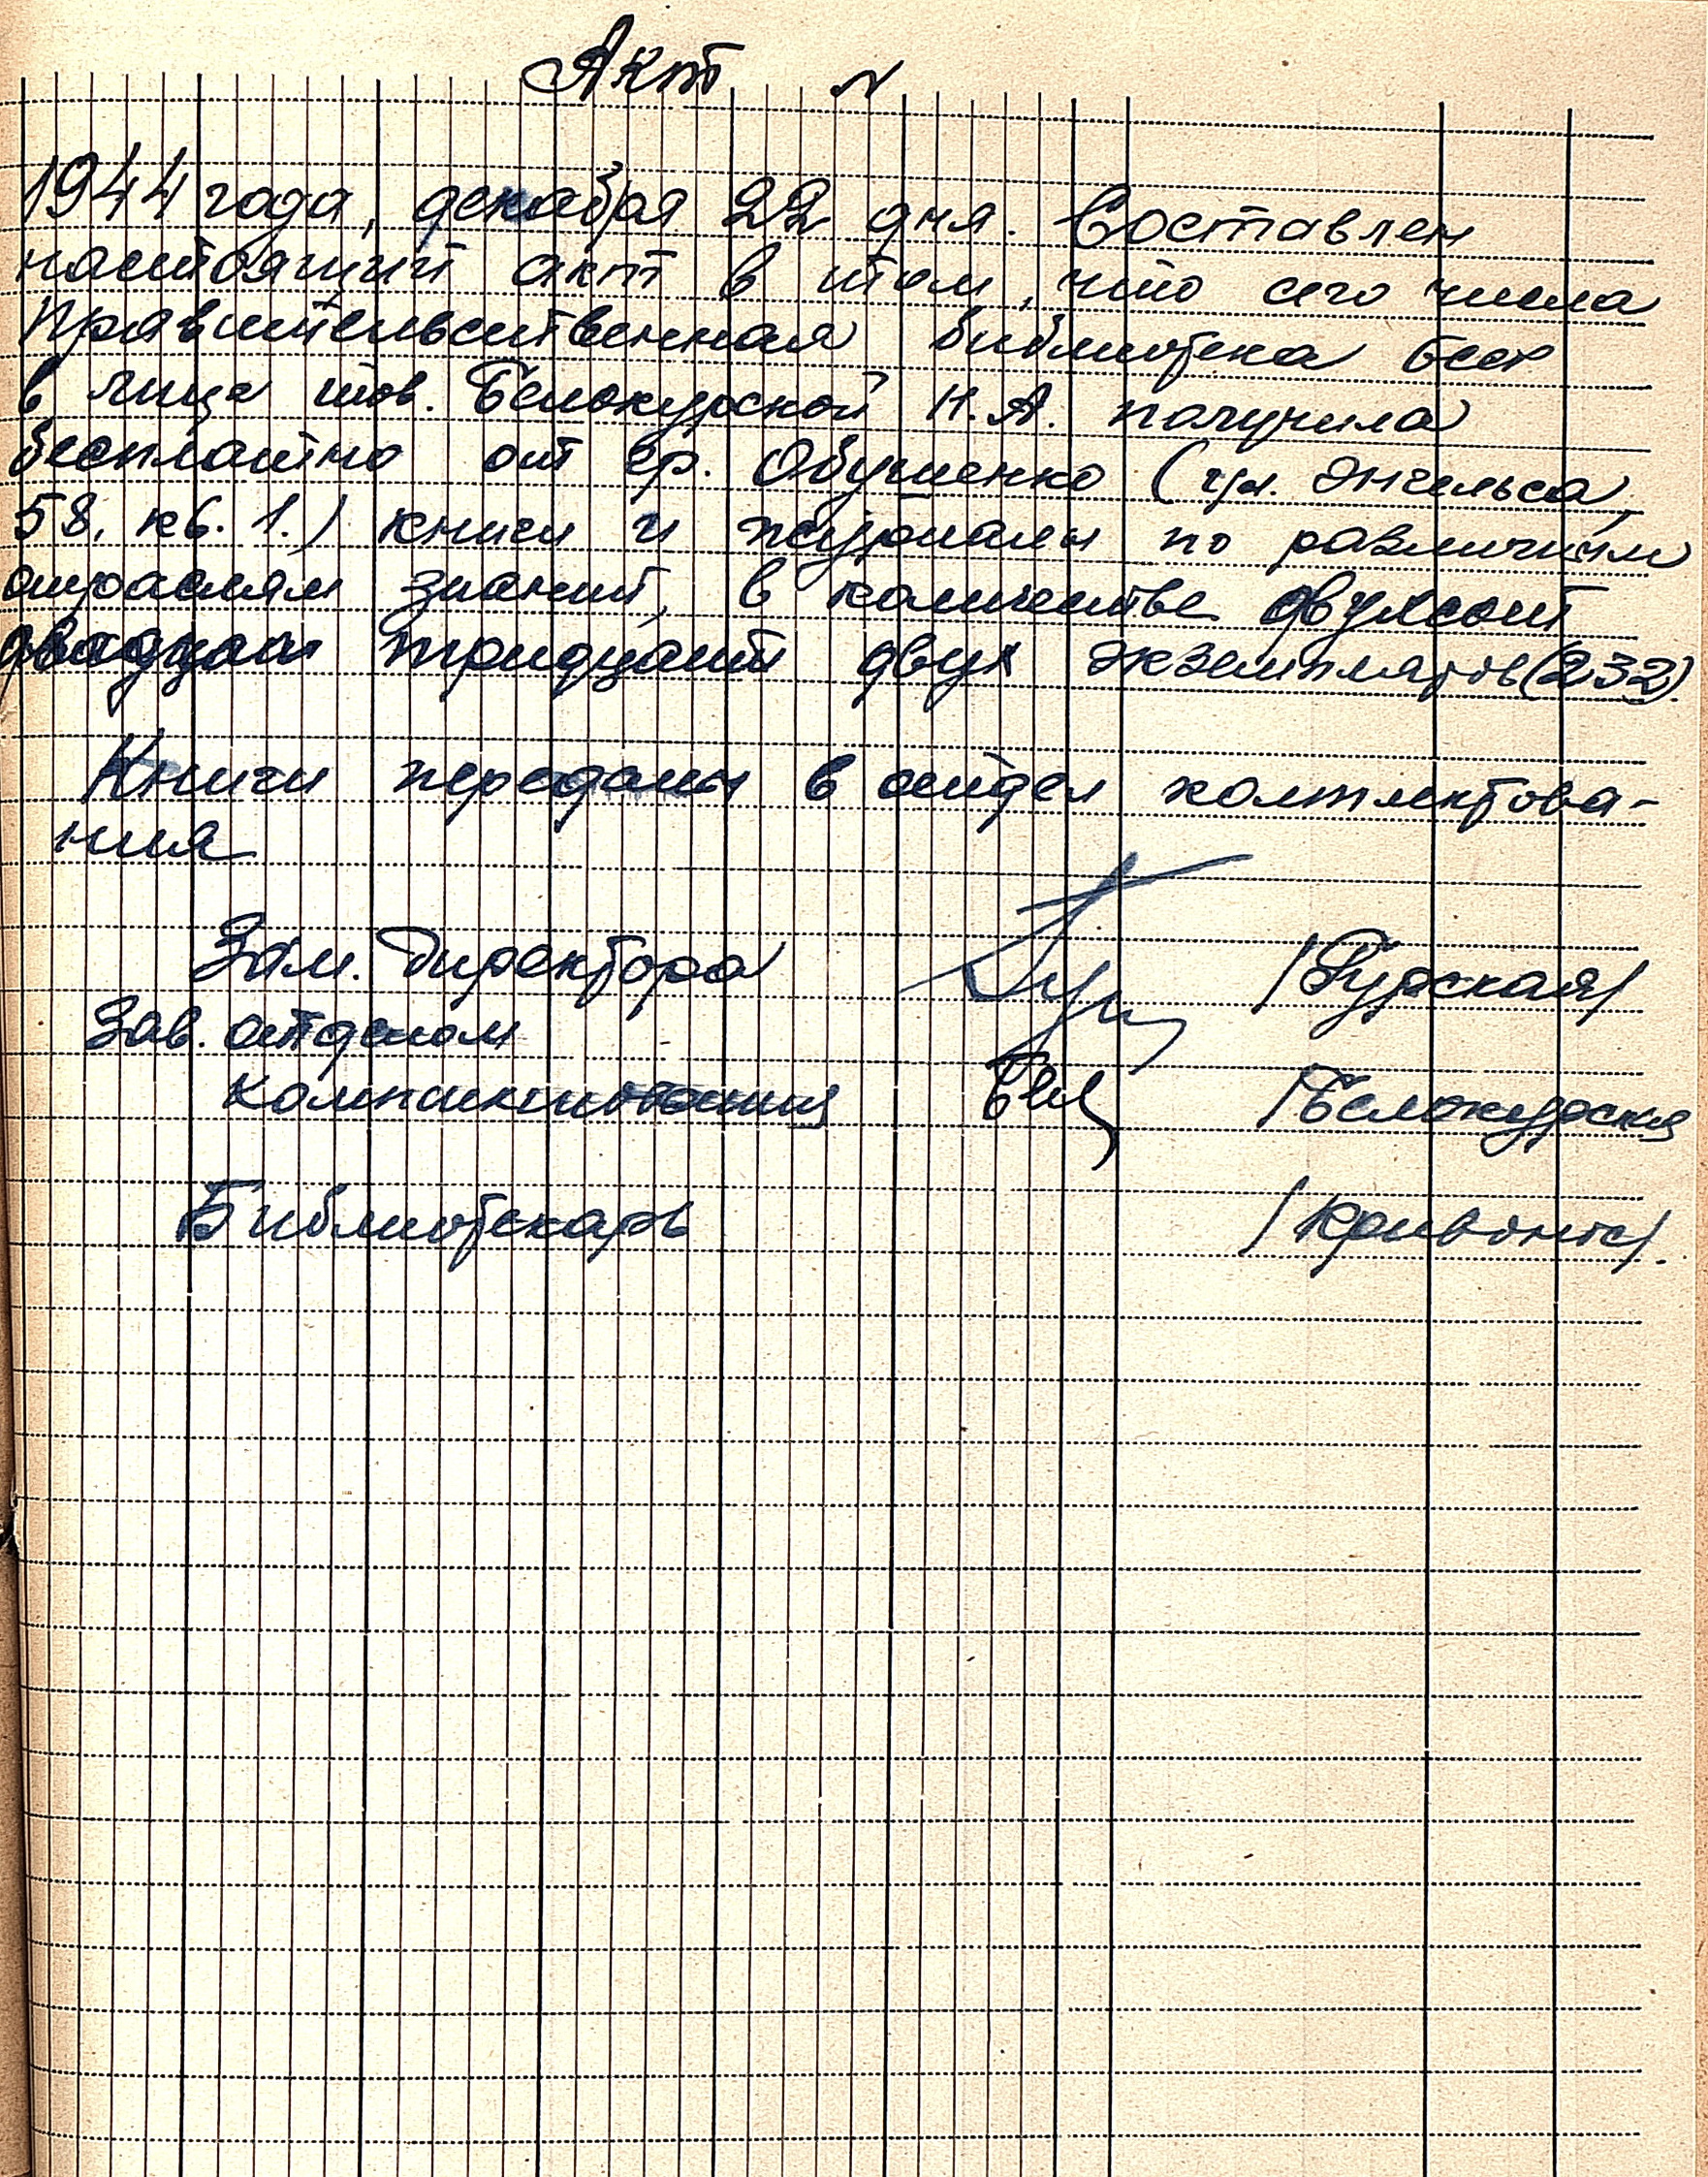 Акт №
1944 года, декабря 22 дня. Составлен
настоящий акт в том, что сего числа
Правительственная библиотека БССР
в лице тов. Белокурской Н.А. получила
бесплатно от гр. (ул. Энгельса,
58, кв. 1.) книги и журналы по различным
отраслям знаний, в количестве двухсот
двадцати тридцати двух экземпляров (232).
Книги переданы в отдел комплектова-
ния
Зам. Директора /Гурская/
Зав. отделом
комплектования /Белокурская
Библиотекарь